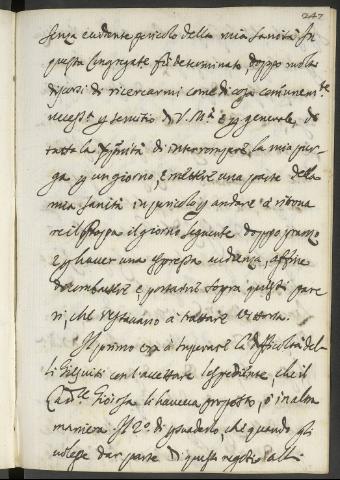 247
senza evidente pericolo della mia sanità. In
questa Congregate fù determinato, doppo molti
discorsi di ricercarmi come di cosa comunem.te
necess.a p servitio di V. M.tà e p generale, di
tutta la di interrompere la mia pur-
ga p un giorno, e mettere una parte della
mia sanità in pericolo p andare à ritrova
re il Papa il giorno seguente doppo pranzo
e p haver una espressa audienza, affine
di combattere e portarmi sopra questi pare
ri, che restavano à trattare
Il primo era à superare la difficoltà del-
li Gesuiti con l'accettare l'espediente, che il
Card.le Gioiosa le haveva proposto, ò in altra
maniera. Il 2.o di persuaderlo, che quando gli
volesse dar parte di questo negotio alli